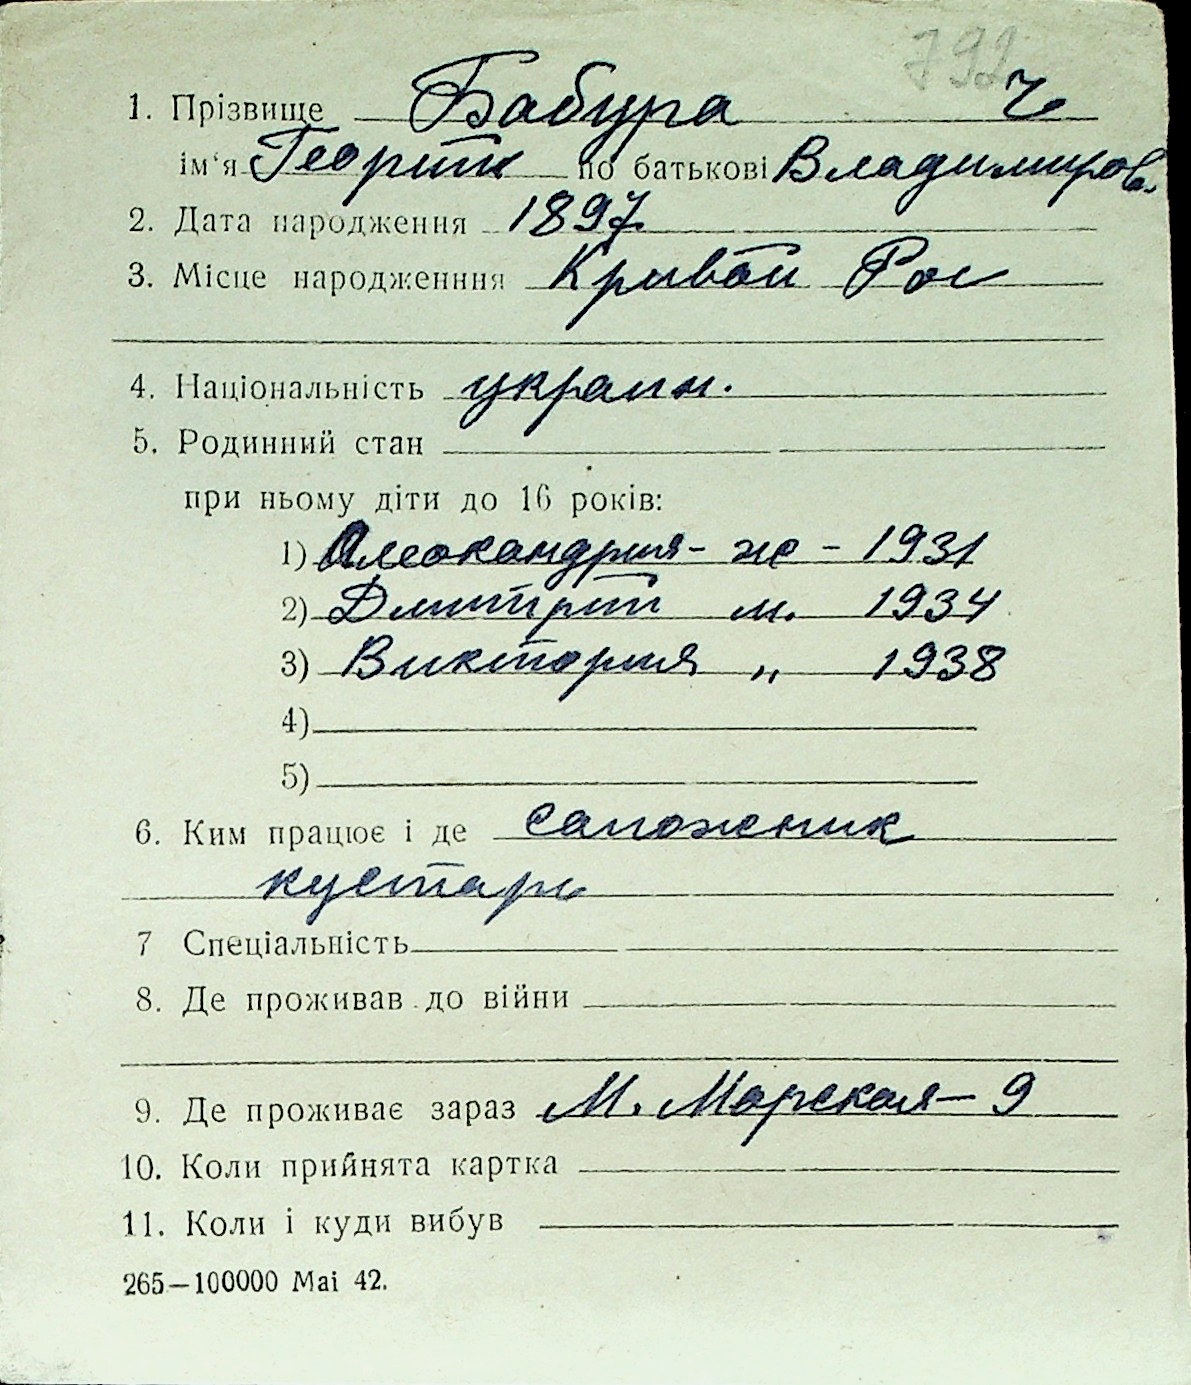 792
1. Прізвище Бабура Ч
ім‘я Георгий по батькові Владимиров.
2. Дата народження 1897
3. Місце народженння Кривой Рог
4. Національність украин.
5. Родинний стан
при ньому діти до 16 років:
1) Александрия - ж - 1931
2) Дмитрий м. 1934
3) Виктория „ 1938
4)
5)
6. Ким працює і де сапожник
кустарь
7 Спеціальність
8. Де проживав до війни
9. Де проживає зараз М. Морская - 9
10. Коли прийнята картка
11. Коли і куди вибув
265—100000 Mai 42.